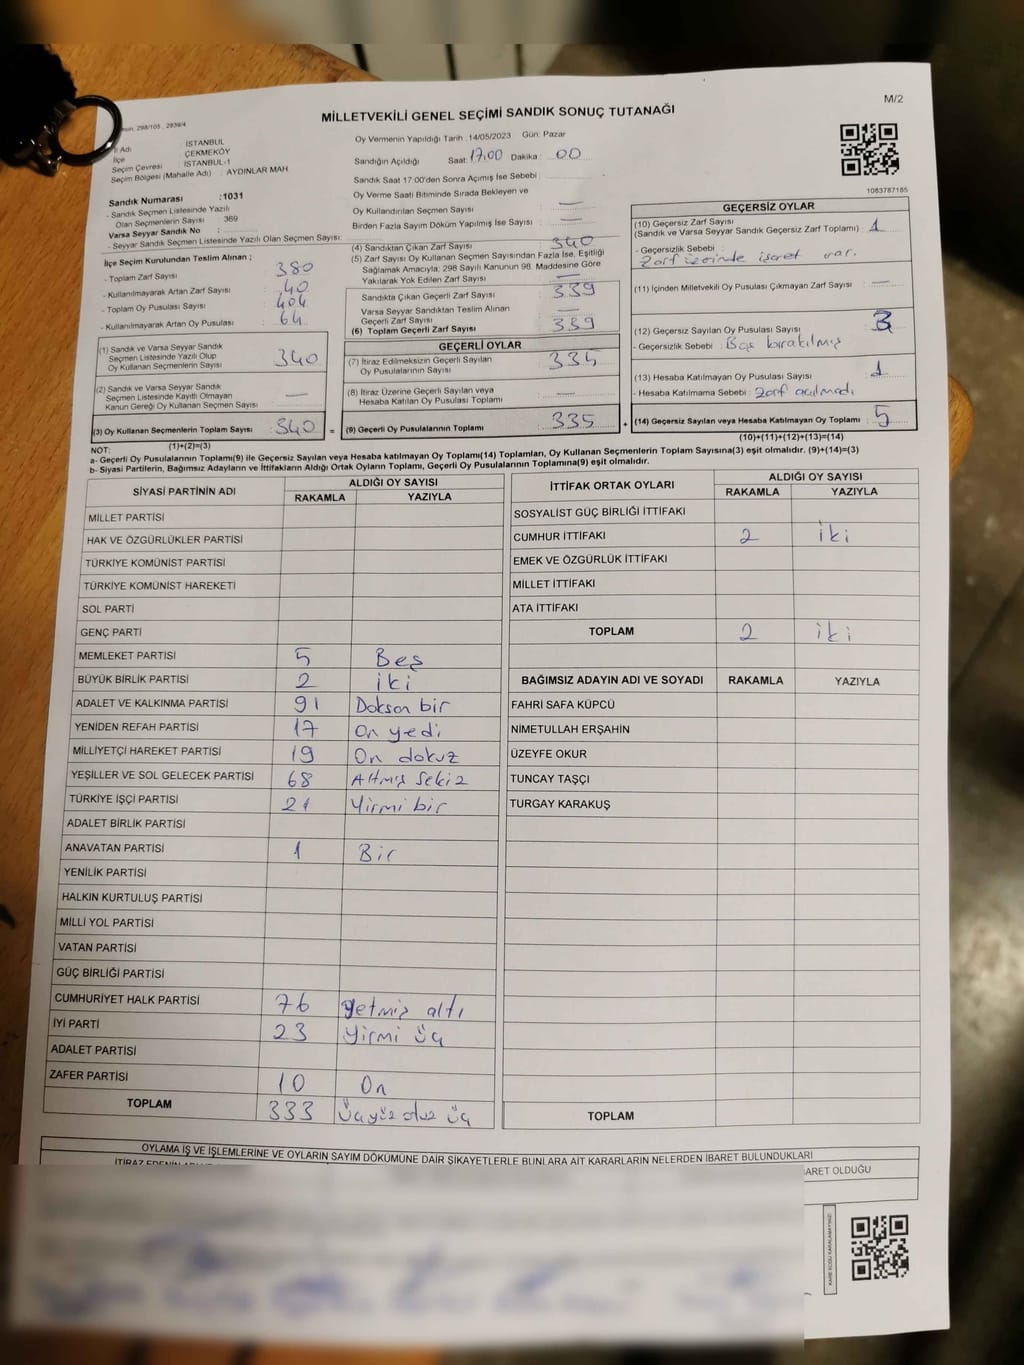 M/2
MİLLETVEKİLİ GENEL SEÇİMİ SANDIK SONUÇ TUTANAĞI
298/105 , 2839/4
İl Adı İSTANBUL
İlçe ÇEKMEKÖY
Seçim Çevresi İSTANBUL-1
Seçim Bölgesi (Mahalle Adı) : AYDINLAR MAH
Oy Vermenin Yapıldığı Tarih : 14/05/2023 Gün: Pazar
Sandığın Açıldığı Saat: 17.00 Dakika : 00
Sandık Saat 17:00'den Sonra Açımış İse Sebebi :
Oy Verme Saati Bitiminde Sırada Bekleyen ve
Oy Kullandırılan Seçmen Sayısı —
Birden Fazla Sayım Döküm Yapılmış İse Sayısı : —
1083787185
Sandık Numarası :1031
- Sandık Seçmen Listesinde Yazılı
Olan Seçmenlerin Sayısı : 369
Varsa Seyyar Sandık No :
- Seyyar Sandık Seçmen Listesinde Yazılı Olan Seçmen Sayısı:
İlçe Seçim Kurulundan Teslim Alınan ;
- Toplam Zarf Sayısı : 380
- Kullanılmayarak Artan Zarf Sayısı : 40
- Toplam Oy Pusulası Sayısı : 404
- Kullanılmayarak Artan Oy Pusulası : 64
(1) Sandık ve Varsa Seyyar Sandık
Seçmen Listesinde Yazılı Olup
Oy Kullanan Seçmenlerin Sayısı : 340
(2) Sandık ve Varsa Seyyar Sandık
Seçmen Listesinde Kayıtlı Olmayan
Kanun Gereği Oy Kullanan Seçmen Sayısı : —
(3) Oy Kullanan Seçmenlerin Toplam Sayısı : 340
(1)+(2)=(3)
(4) Sandıktan Çıkan Zarf Sayısı : 340
(5) Zarf Sayısı Oy Kullanan Seçmen Sayısından Fazla İse, Eşitliği
Sağlamak Amacıyla, 298 Sayılı Kanunun 98. Maddesine Göre
Yakılarak Yok Edilen Zarf Sayısı : —
Sandıkta Çıkan Geçerli Zarf Sayısı : 339
Varsa Seyyar Sandıktan Teslim Alınan
Geçerli Zarf Sayısı : —
(6) Toplam Geçerli Zarf Sayısı : 339
GEÇERLİ OYLAR
(7) İtiraz Edilmeksizin Geçerli Sayılan
Oy Pusulalarının Sayısı : 335
(8) İtiraz Üzerine Geçerli Sayılan veya
Hesaba Katılan Oy Pusulası Toplamı : —
= (9) Geçerli Oy Pusulalarının Toplamı : 335 +
GEÇERSİZ OYLAR
(10) Geçersiz Zarf Sayısı
(Sandık ve Varsa Seyyar Sandık Geçersiz Zarf Toplamı) : 1
- Geçersizlik Sebebi :
Zarf üzerinde işaret var.
(11) İçinden Milletvekili Oy Pusulası Çıkmayan Zarf Sayısı : —
(12) Geçersiz Sayılan Oy Pusulası Sayısı : 3
- Geçersizlik Sebebi : Boş bırakılmış
(13) Hesaba Katılmayan Oy Pusulası Sayısı : 1
- Hesaba Katılmama Sebebi : Zarf açılmadı
(14) Geçersiz Sayılan veya Hesaba Katılmayan Oy Toplamı : 5
(10)+(11)+(12)+(13)=(14)
NOT:
a- Geçerli Oy Pusulalarının Toplamı(9) ile Geçersiz Sayılan veya Hesaba Katılmayan Oy Toplamı(14) Toplamları, Oy Kullanan Seçmenlerin Toplam Sayısına(3) eşit olmalıdır. (9)+(14)=(3)
b- Siyasi Partilerin, Bağımsız Adayların ve İttifakların Aldığı Ortak Oyların Toplamı, Geçerli Oy Pusulalarının Toplamına(9) eşit olmalıdır.
SİYASİ PARTİNİN ADI ALDIĞI OY SAYISI
RAKAMLA YAZIYLA
MİLLET PARTİSİ
HAK VE ÖZGÜRLÜKLER PARTİSİ
TÜRKİYE KOMÜNİST PARTİSİ
TÜRKİYE KOMÜNİST HAREKETİ
SOL PARTİ
GENÇ PARTİ
MEMLEKET PARTİSİ 5 Beş
BÜYÜK BİRLİK PARTİSİ 2 iki
ADALET VE KALKINMA PARTİSİ 91 Doksan bir
YENİDEN REFAH PARTİSİ 17 On yedi
MİLLİYETÇİ HAREKET PARTİSİ 19 On dokuz
YEŞİLLER VE SOL GELECEK PARTİSİ 68 Altmış Sekiz
TÜRKİYE İŞÇİ PARTİSİ 21 Yirmi bir
ADALET BİRLİK PARTİSİ
ANAVATAN PARTİSİ 1 Bir
YENİLİK PARTİSİ
HALKIN KURTULUŞ PARTİSİ
MİLLİ YOL PARTİSİ
VATAN PARTİSİ
GÜÇ BİRLİĞİ PARTİSİ
CUMHURİYET HALK PARTİSİ 76 yetmiş altı
İYİ PARTİ 23 Yirmi üç
ADALET PARTİSİ
ZAFER PARTİSİ 10 On
TOPLAM 333 Üçyüz otuz üç
İTTİFAK ORTAK OYLARI ALDIĞI OY SAYISI
RAKAMLA YAZIYLA
SOSYALİST GÜÇ BİRLİĞİ İTTİFAKI
CUMHUR İTTİFAKI 2 iki
EMEK VE ÖZGÜRLÜK İTTİFAKI
MİLLET İTTİFAKI
ATA İTTİFAKI
TOPLAM 2 iki
BAĞIMSIZ ADAYIN ADI VE SOYADI RAKAMLA YAZIYLA
FAHRİ SAFA KÜPCÜ
NİMETULLAH ERŞAHİN
ÜZEYFE OKUR
TUNCAY TAŞÇI
TURGAY KARAKUŞ
TOPLAM
OYLAMA İŞ VE İŞLEMLERİNE VE OYLARIN SAYIM DÖKÜMÜNE DAİR ŞİKAYETLERLE BUNLARA AİT KARARLARIN NELERDEN İBARET BULUNDUKLARI
OLDUĞU